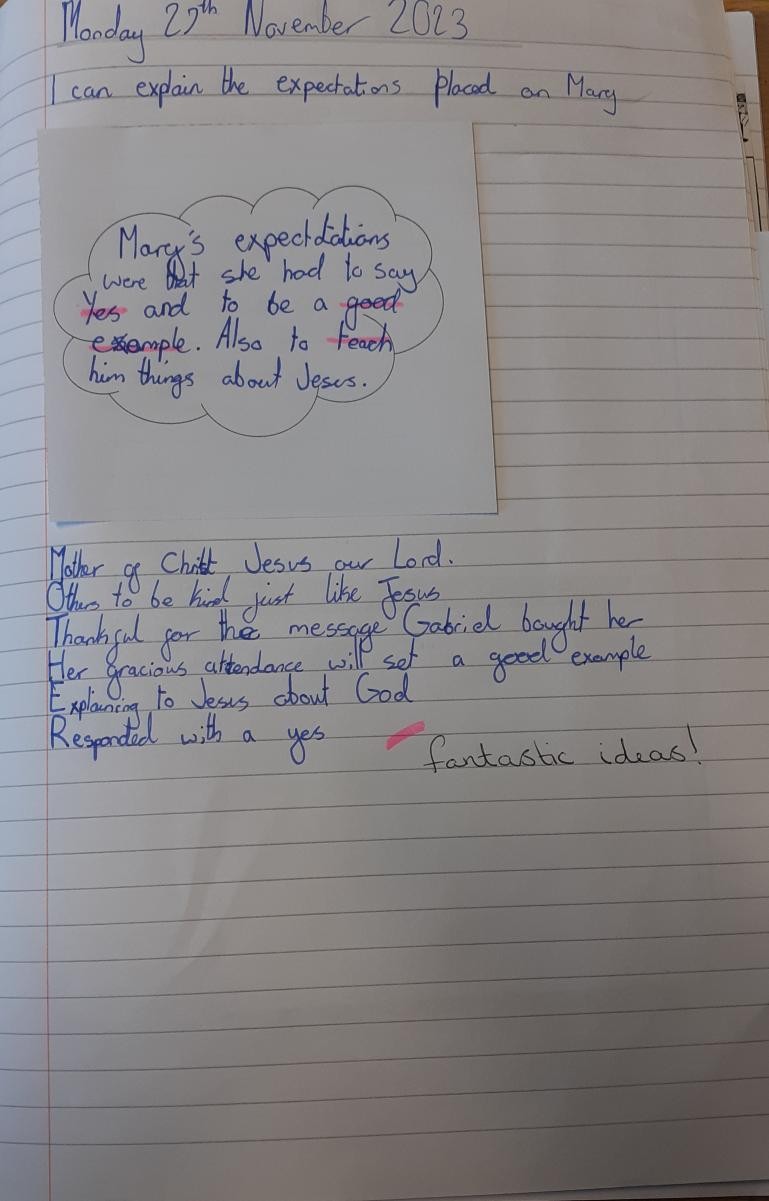 Monday 27th November 2023
I can explain the expectations placed on Mary
Mary's expectations
were that she had to say
Yes and to be a good
example. Also to teach
him things about Jesus.
Mother of Christ Jesus our Lord.
Others to be kind just like Jesus
Thankful for the message Gabriel bought her
Her gracious attendance will set a good example
Explaining to Jesus about God
Responded with a yes
fantastic ideas!